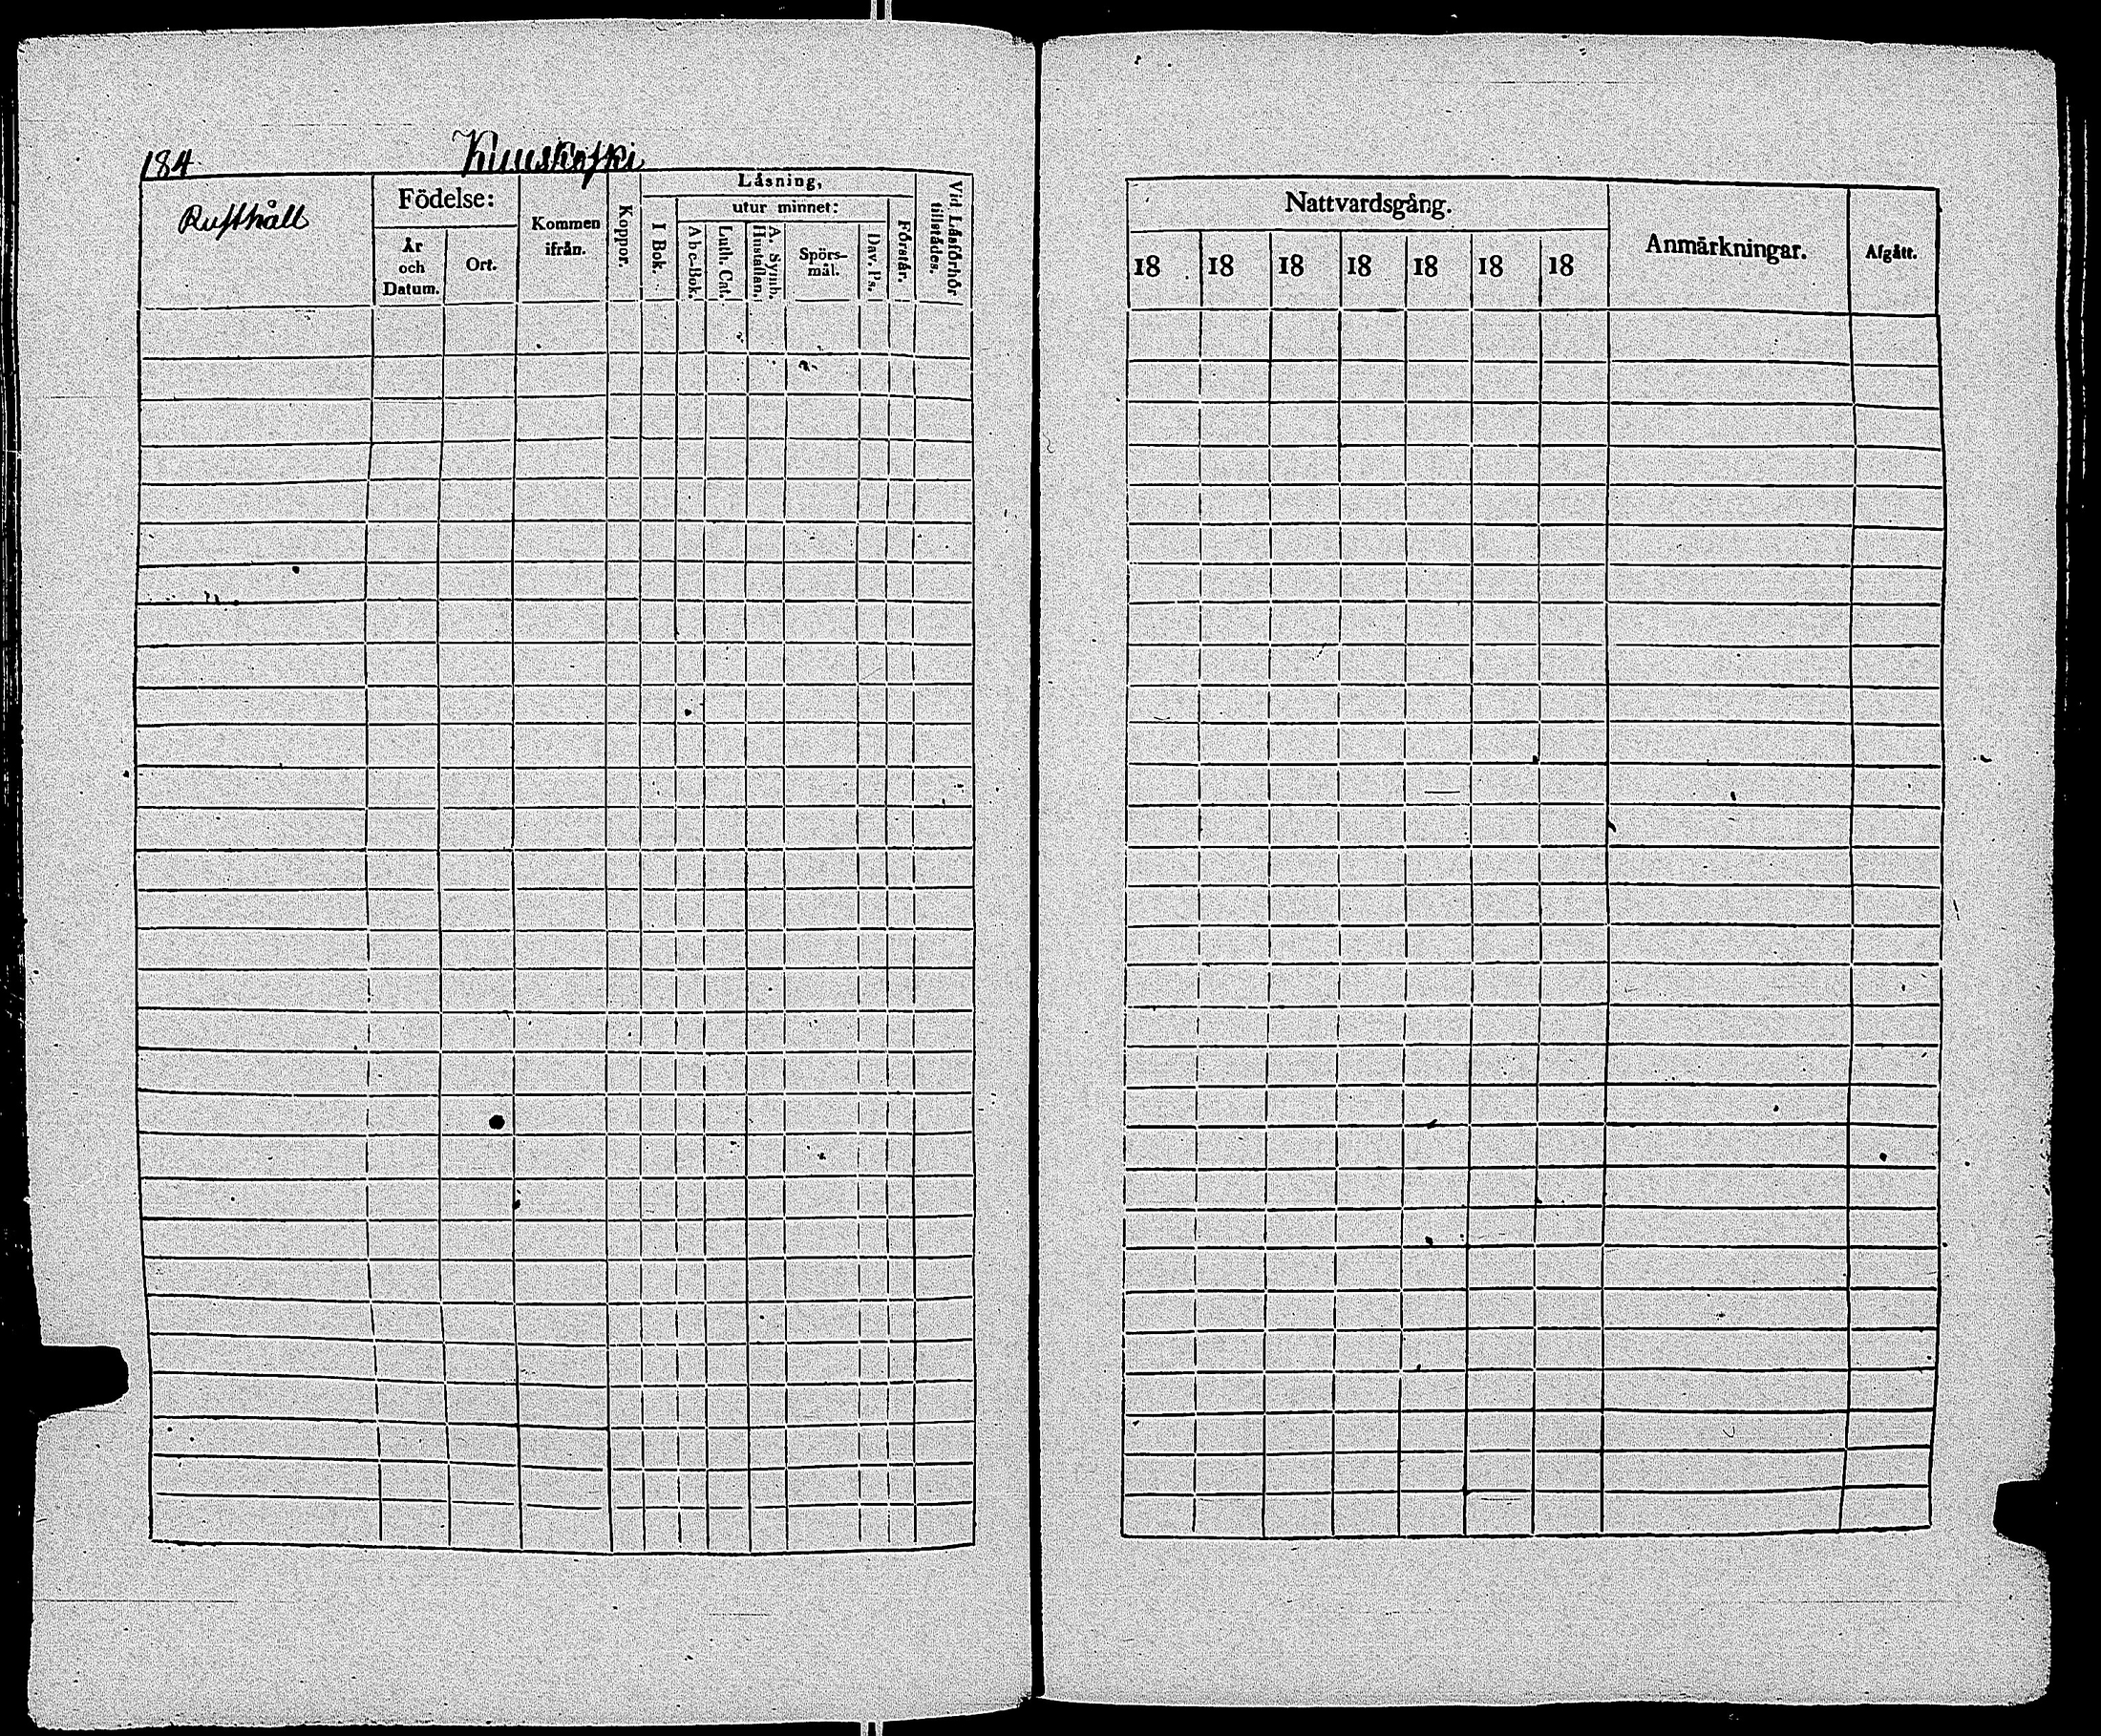 184. Kuuskoski
Rusthåll
Födelse:
År
och
Datum.
Ort.
Kommen
ifrån.
Koppor.
Läsning,
I Bok.
utur minnet:
Abc-Bok.
Luth. Cat.
A. Symb.
Hustaflan.
Spörs-
mål.
Dav. Ps.
Förstår.
Vid Läsförhör
tillstädes.
Nattvardsgång.
18 18 18 18 18 18 18
Anmärkningar.
Afgått.